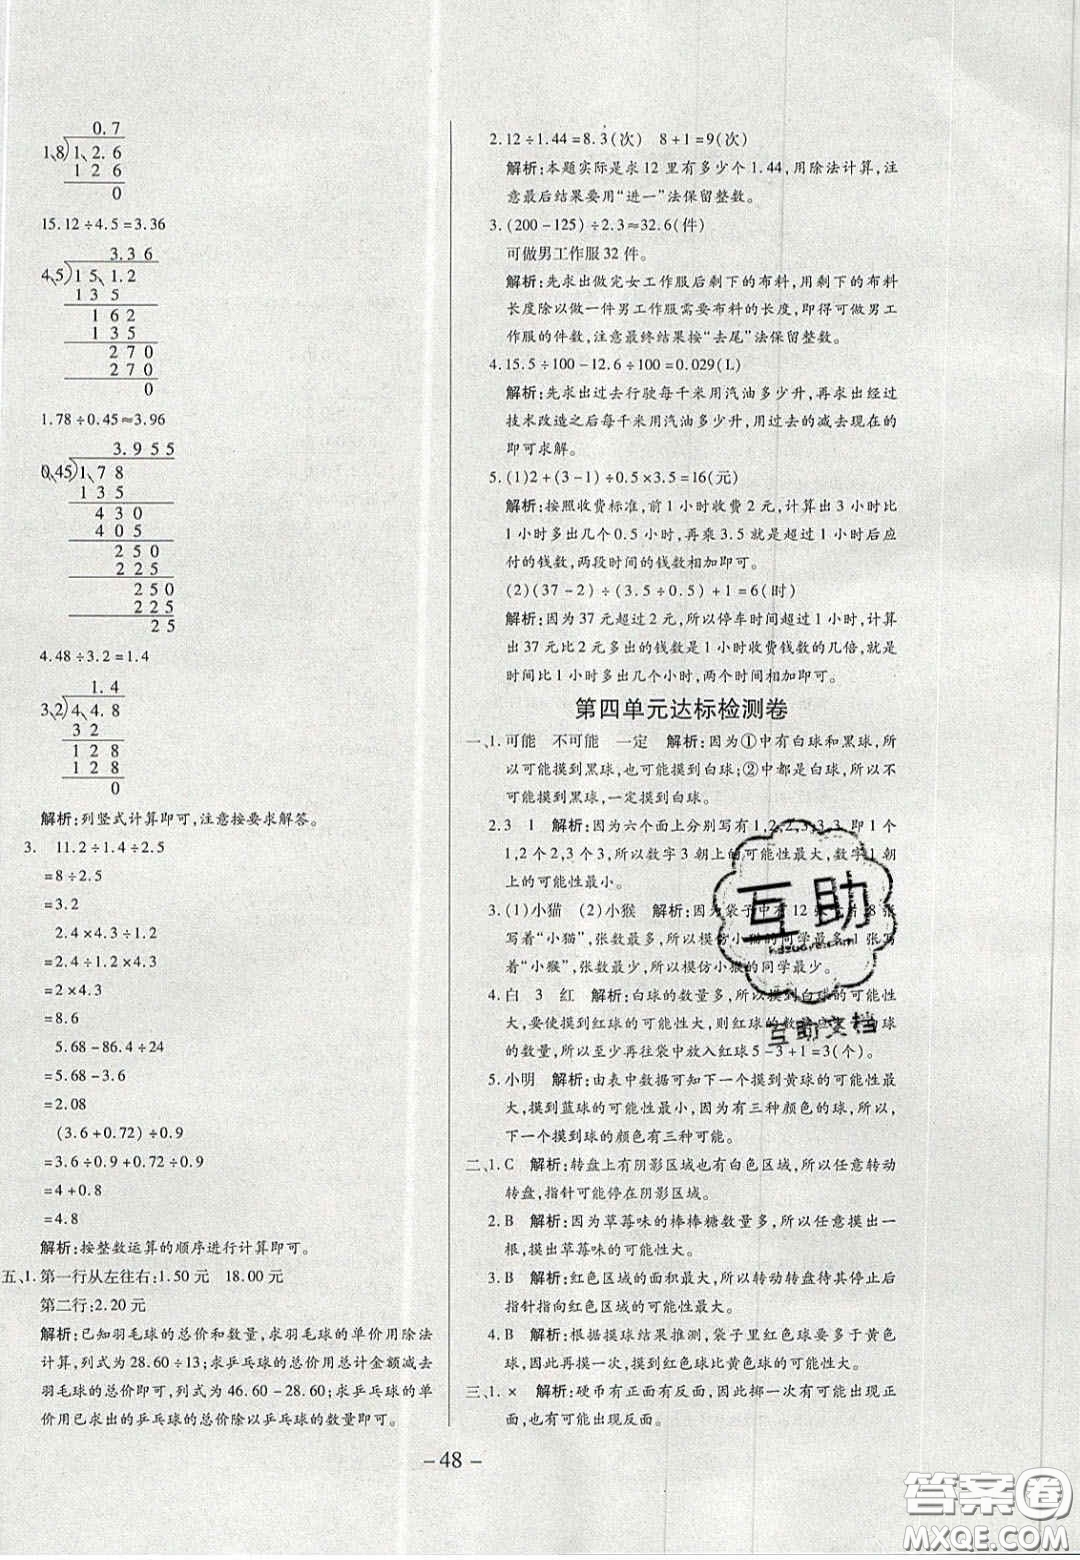 0.7
1.8)1.2.6
1 2 6
0
15.12÷4.5=3.36
3.3 6
4.5)1 5.1.2
1 3 5
1 6 2
1 3 5
2 7 0
2 7 0
0
1.78÷0.45≈3.96
3.9 5 5
0.45)1.7 8
1 3 5
4 3 0
4 0 5
2 5 0
2 2 5
2 5 0
2 2 5
2 5
4.48÷3.2=1.4
1.4
3.2)4.4.8
3 2
1 2 8
1 2 8
0
解析:列竖式计算即可,注意按要求解答。
3. 11.2÷1.4÷2.5
=8÷2.5
=3.2
2.4×4.3÷1.2
=2.4÷1.2×4.3
=2×4.3
=8.6
5.68-86.4÷24
=5.68-3.6
=2.08
(3.6+0.72)÷0.9
=3.6÷0.9+0.72÷0.9
=4+0.8
=4.8
解析:按整数运算的顺序进行计算即可。
五、1.第一行从左往右:1.50元 18.00元
第二行:2.20元
解析:已知羽毛球的总价和数量,求羽毛球的单价用除法
计算,列式为28.60÷13;求乒乓球的总价用总计金额减去
羽毛球的总价即可,列式为46.60-28.60;求乒乓球的单
价用已求出的乒乓球的总价除以乒乓球的数量即可。
2.12÷1.44=8.3(次) 8+1=9(次)
解析:本题实际是求12里有多少个1.44,用除法计算,注
意最后结果要用“进一”法保留整数。
3.(200-125)÷2.3≈32.6(件)
可做男工作服32件。
解析:先求出做完女工作服后剩下的布料,用剩下的布料
长度除以做一件男工作服需要布料的长度,即可求得男工
作服的件数,注意最终结果按“去尾”法保留整数。
4.15.5÷100-12.6÷100=0.029(L)
解析:先求出过去行驶每千米用汽油多少升,再求出经过
技术改造之后每千米用汽油多少升,用过去的减去现在的
即可求解。
5.(1)2+(3-1)÷0.5×3.5=16(元)
解析:按照收费标准,前1小时收费2元,计算出3小时比
1小时多出几个0.5小时,再乘3.5就是超过1小时后应
付的钱数,两段时间的钱数相加即可。
(2)(37-2)÷(3.5÷0.5)+1=6(时)
解析:因为37元超过2元,所以停车时间超过1小时,计算
出37元比2元多出的钱数是1小时收费钱数的几倍,就是
时间比1小时多出几个小时,两个时间相加即可。
第四单元达标检测卷
一、1.可能 不可能 一定 解析:因为①中有白球和黑球,所
以可能摸到黑球,也可能摸到白球;②中都是白球,所以不
可能摸到黑球,一定摸到白球。
2.3 1 解析:因为六个面上分别写有1,2,2,3,3,3,即1个
1,2个2,3个3,所以数字3朝上的可能性最大,数字1朝
上的可能性最小。
3.(1)小猫 (2)小猴 解析:因为袋子中有12张 8张
写着“小猫”,张数最多,所以模仿小猫的同学最多,1张写
着“小猴”,张数最少,所以模仿小猴的同学最少。
4.白 3 红 解析:白球的数量多,所以摸到白球的可能性
大,要使摸到红球的可能性大,则红球的数量 白球
的数量,所以至少再往袋中放入红球5-3+1=3(个)。
5.小明 解析:由表中数据可知下一个摸到黄球的可能性最
大,摸到蓝球的可能性最小,因为有三种颜色的球,所以,
下一个摸到球的颜色有三种可能。
二、1.C 解析:转盘上有阴影区域也有白色区域,所以任意转动
转盘,指针可能停在阴影区域。
2.B 解析:因为草莓味的棒棒糖数量多,所以任意摸出一
根,摸出草莓味的可能性大。
3.B 解析:红色区域的面积最大,所以转动转盘待其停止后
指针指向红色区域的可能性最大。
4.B 解析:根据摸球结果推测,袋子里红色球要多于黄色
球,因此再摸一次,摸到红色球比黄色球的可能性大。
三、1.× 解析:硬币有正面有反面,因此掷一次有可能出现正
面,也有可能出现反面。
- 48 -
互助
互助文档
答案卷
MXQE.COM